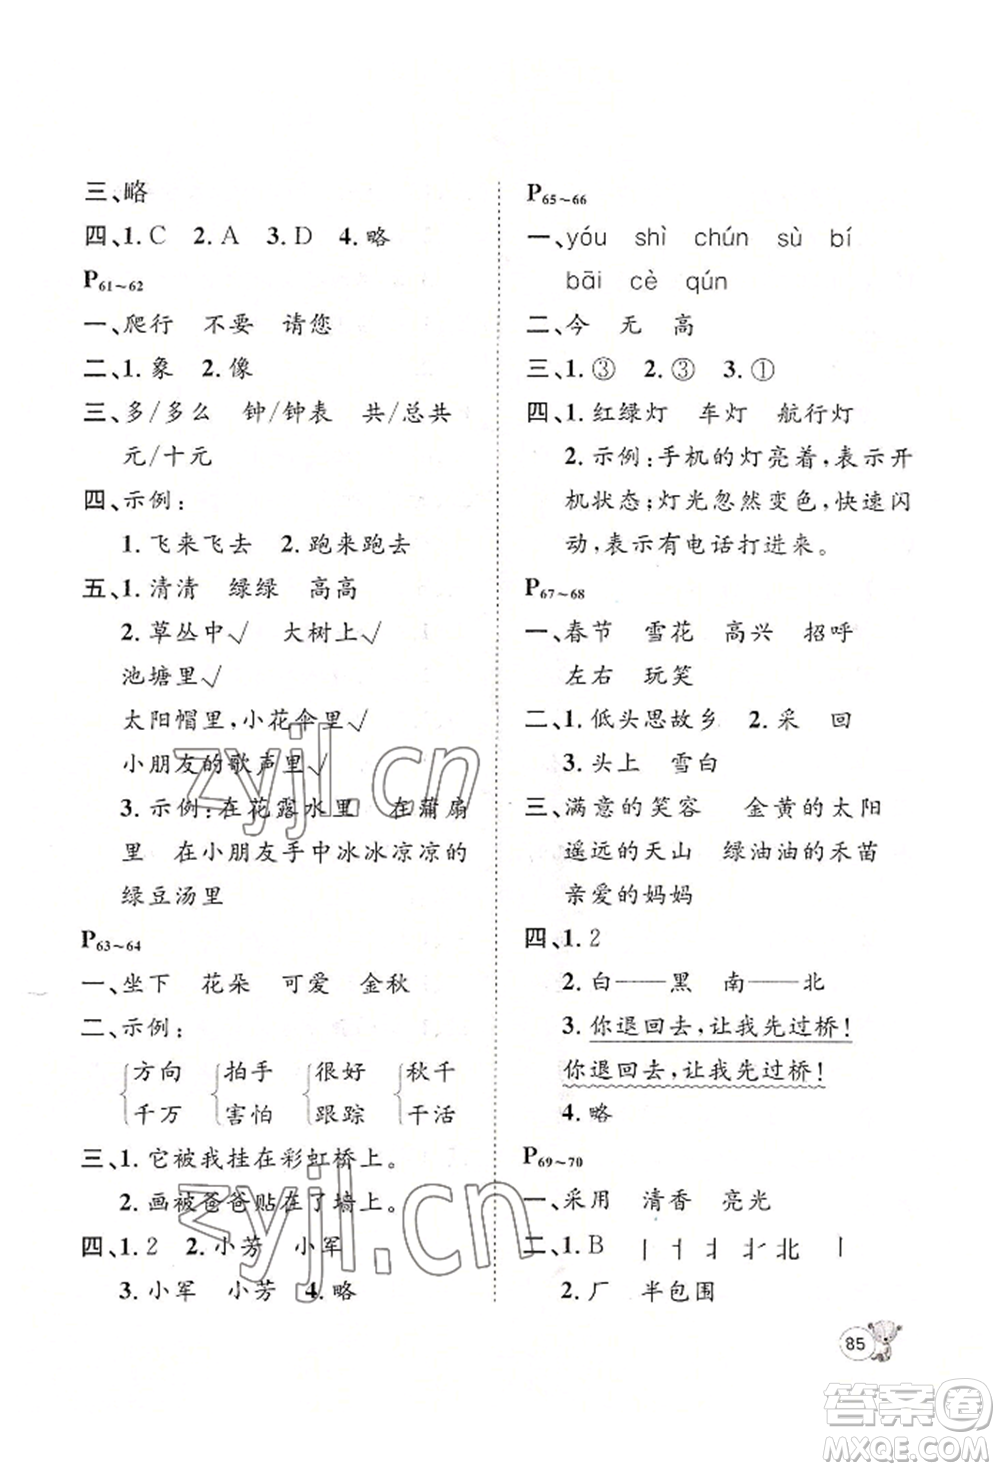 三、略
四、1.C 2.A 3.D 4.略
P61~62
一、爬行 不要 请您
二、1.象 2.像
三、多/多么 钟/钟表 共/总共
元/十元
四、示例：
1.飞来飞去 2.跑来跑去
五、1.清清 绿绿 高高
2.草丛中√ 大树上√
池塘里√
太阳帽里，小花伞里√
小朋友的歌声里√
3.示例：在花露水里 在蒲扇
里 在小朋友手中冰冰凉凉的
绿豆汤里
P63~64
一、坐下 花朵 可爱 金秋
二、示例：
方向 拍手 很好 秋千
千万 害怕 跟踪 干活
三、1.它被我挂在彩虹桥上。
2.画被爸爸贴在了墙上。
四、1.2 2.小芳 小军
3.小军 小芳 4.略
P65~66
一、yóu shì chún sù bí
bāi cè qún
二、今 无 高
三、1.③ 2.③ 3.①
四、1.红绿灯 车灯 航行灯
2.示例：手机的灯亮着，表示开
机状态；灯光忽然变色，快速闪
动，表示有电话打进来。
P67~68
一、春节 雪花 高兴 招呼
左右 玩笑
二、1.低头思故乡 2.采 回
3.头上 雪白
三、满意的笑容 金黄的太阳
遥远的天山 绿油油的禾苗
亲爱的妈妈
四、1.2
2.白——黑 南——北
3.你退回去，让我先过桥！
你退回去，让我先过桥！
4.略
P69~70
一、采用 清香 亮光
二、1.B 丨
2.厂 半包围
85
zyjl.cn
zyjl.cn
答案卷
MXQE.COM